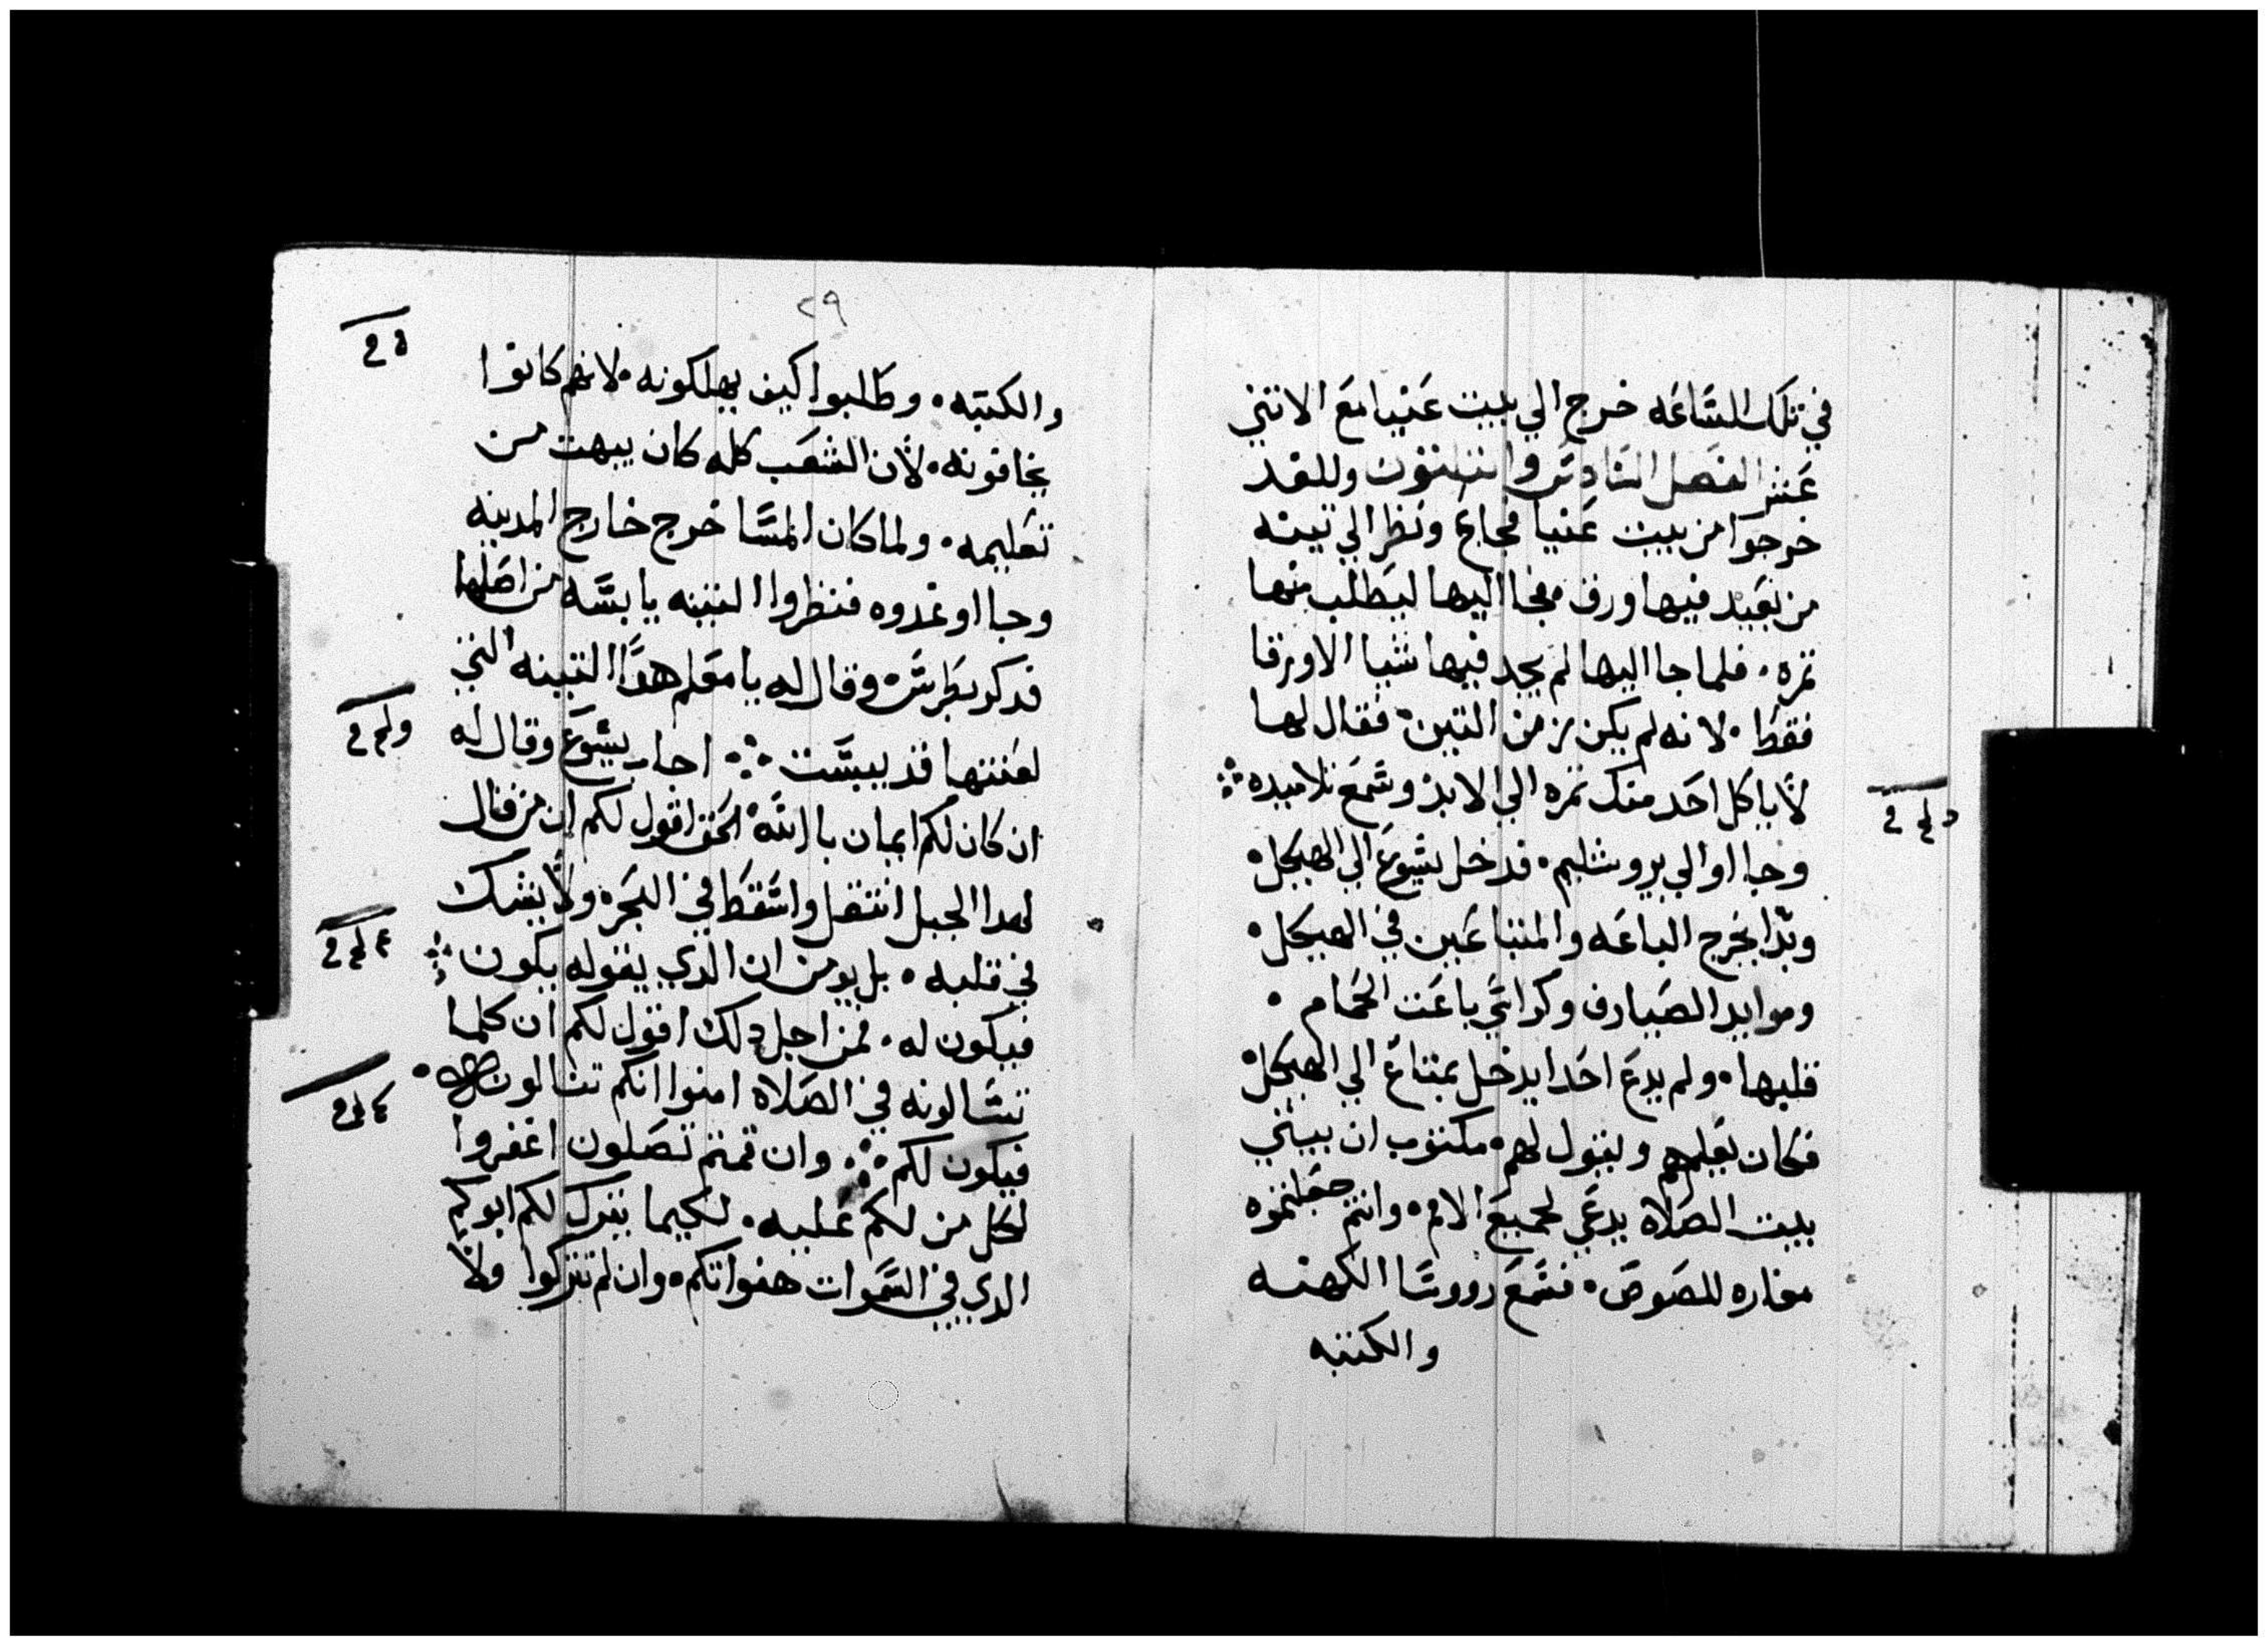 في تلك الساعه خرج الي بيت عنيا مع الاتني
عشر الفصل السادس والتلتون وللغد
خرجوا من بيت عنيا فجاع ونظر الي تينه
من بعيد فيها ورق فجا اليها ليطلب منها
تمره فلما جا اليها لم يجد فيها شيا الا ورقا
فقط لانه لم يكن زمن التين فقال لها
لا ياكل احد منك تمره الي الابد وسمع تلاميده
وجااوا الي يروشليم فدخل يسوع الي الهيكل
وبدا يخرج الباعه والمتباعين في الهيكل
وموايد الصيارف وكراسي باعت الحمام
قلبها ولم يدع احدا يدخل بمتاع الي الهيكل
فكان يعلمهم ويقول لهم مكتوب ان بيتي
بيت الصلاة يدعي لجميع الامم وانتم جعلتموه
مغاره للصوص فسمع رووسا الكهنه
والكتبه
٢٩
والكتبه وطلبوا كيف يهلكونه لانهم كانوا
يخافونه لان الشعب كله كان يبهت من
تعليمه ولما كان المسا خرج خارج المدينه
وجااو غدوه فنظروا التينه يابسه من اصلها
فدكر بطرس وقال له يا معلم هدا التينه التي
لعنتها قد يبست اجاب يسوع وقال له
ان كان لكم ايمان بالله الحق اقول لكم ان من قال
لهدا الجبل انتقل واسقط في البحره ولا يشك
في قلبه بل يومن ان الدي يقوله يكون
فيكون له فمن اجل دلك اقول لكم ان كلما
تسالونه في الصلاة امنوا انكم تنالون
فيكون لكم وان قمتم تصلون اغفروا
لكل من لكم عليه لكيما يترك لكم ابوكم
الدي في السموات هفواتكم وان لم تتركوا ولا